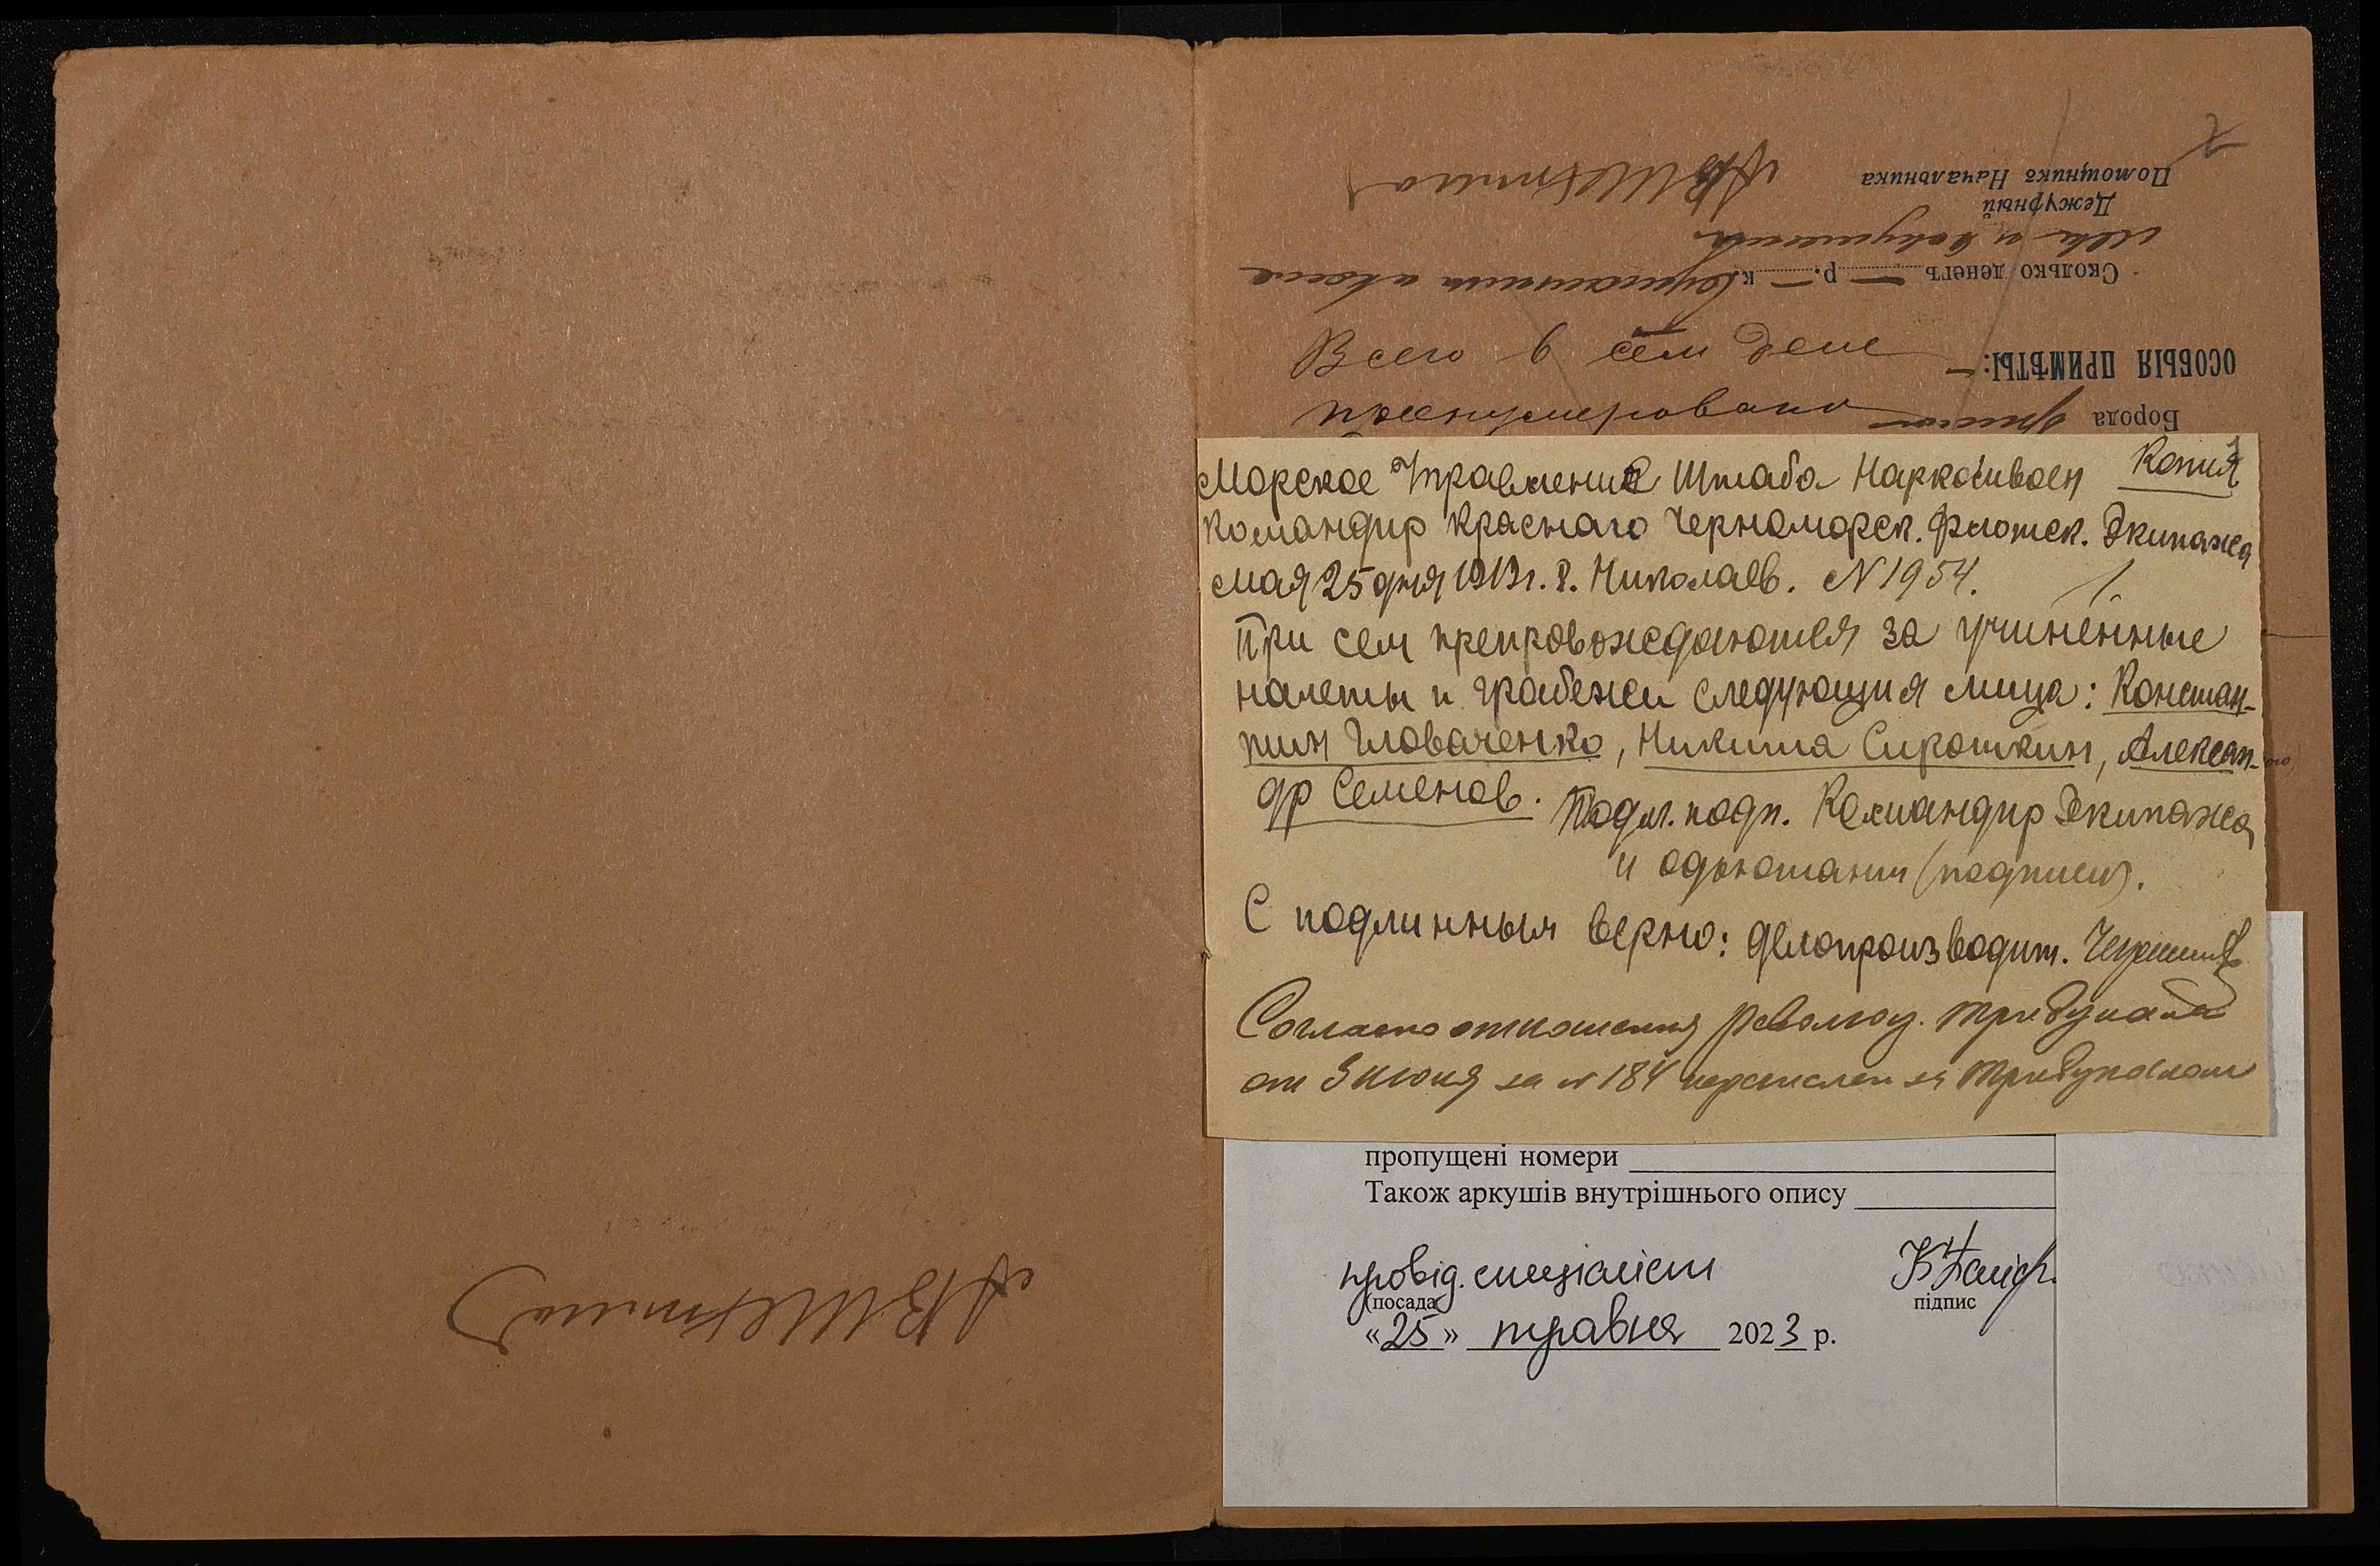 Помощника Начальника
Дежурный
Сколько денегъ — р. — к.
Всего в сем деле
ОСОБЫЯ ПРИМѢТЫ: —
пронумеровано
Борода
Копия
Морское Управление Штаба Наркомвоен
Командир Краснаго Черноморск. Флотск. Экипажа
мая 25 дня 1919 г. г. Николаев. N 1954.
1.
При сем препровождаются за учинённые
налеты и грабежи следующия лица: Констан-
тин Головаченко, Никита Сироткин, Алексан-
др Семенов. Подл. подп. Командир Экипажа
и адъютант (подписи).
С подлинным верно: делопроизводит.
Согласно отношения Революц. Трибунала
от 3 июня за N 184 перечислен за Трибуналом
пропущені номери
Також аркушів внутрішнього опису
провід. спеціаліст
посада
підпис
«25» травня 2023 р.